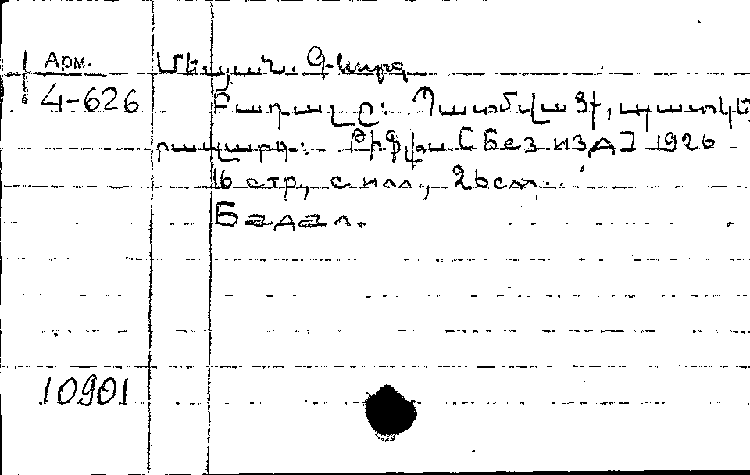 Арм.
4-626
Մելյան. Գևորգ
Բադալը: Պատմվածք, պատկե
րազարդ: Թիֆլիս [Без изд] 1926
16 стр., с илл., 26см.
Бадал.
10901